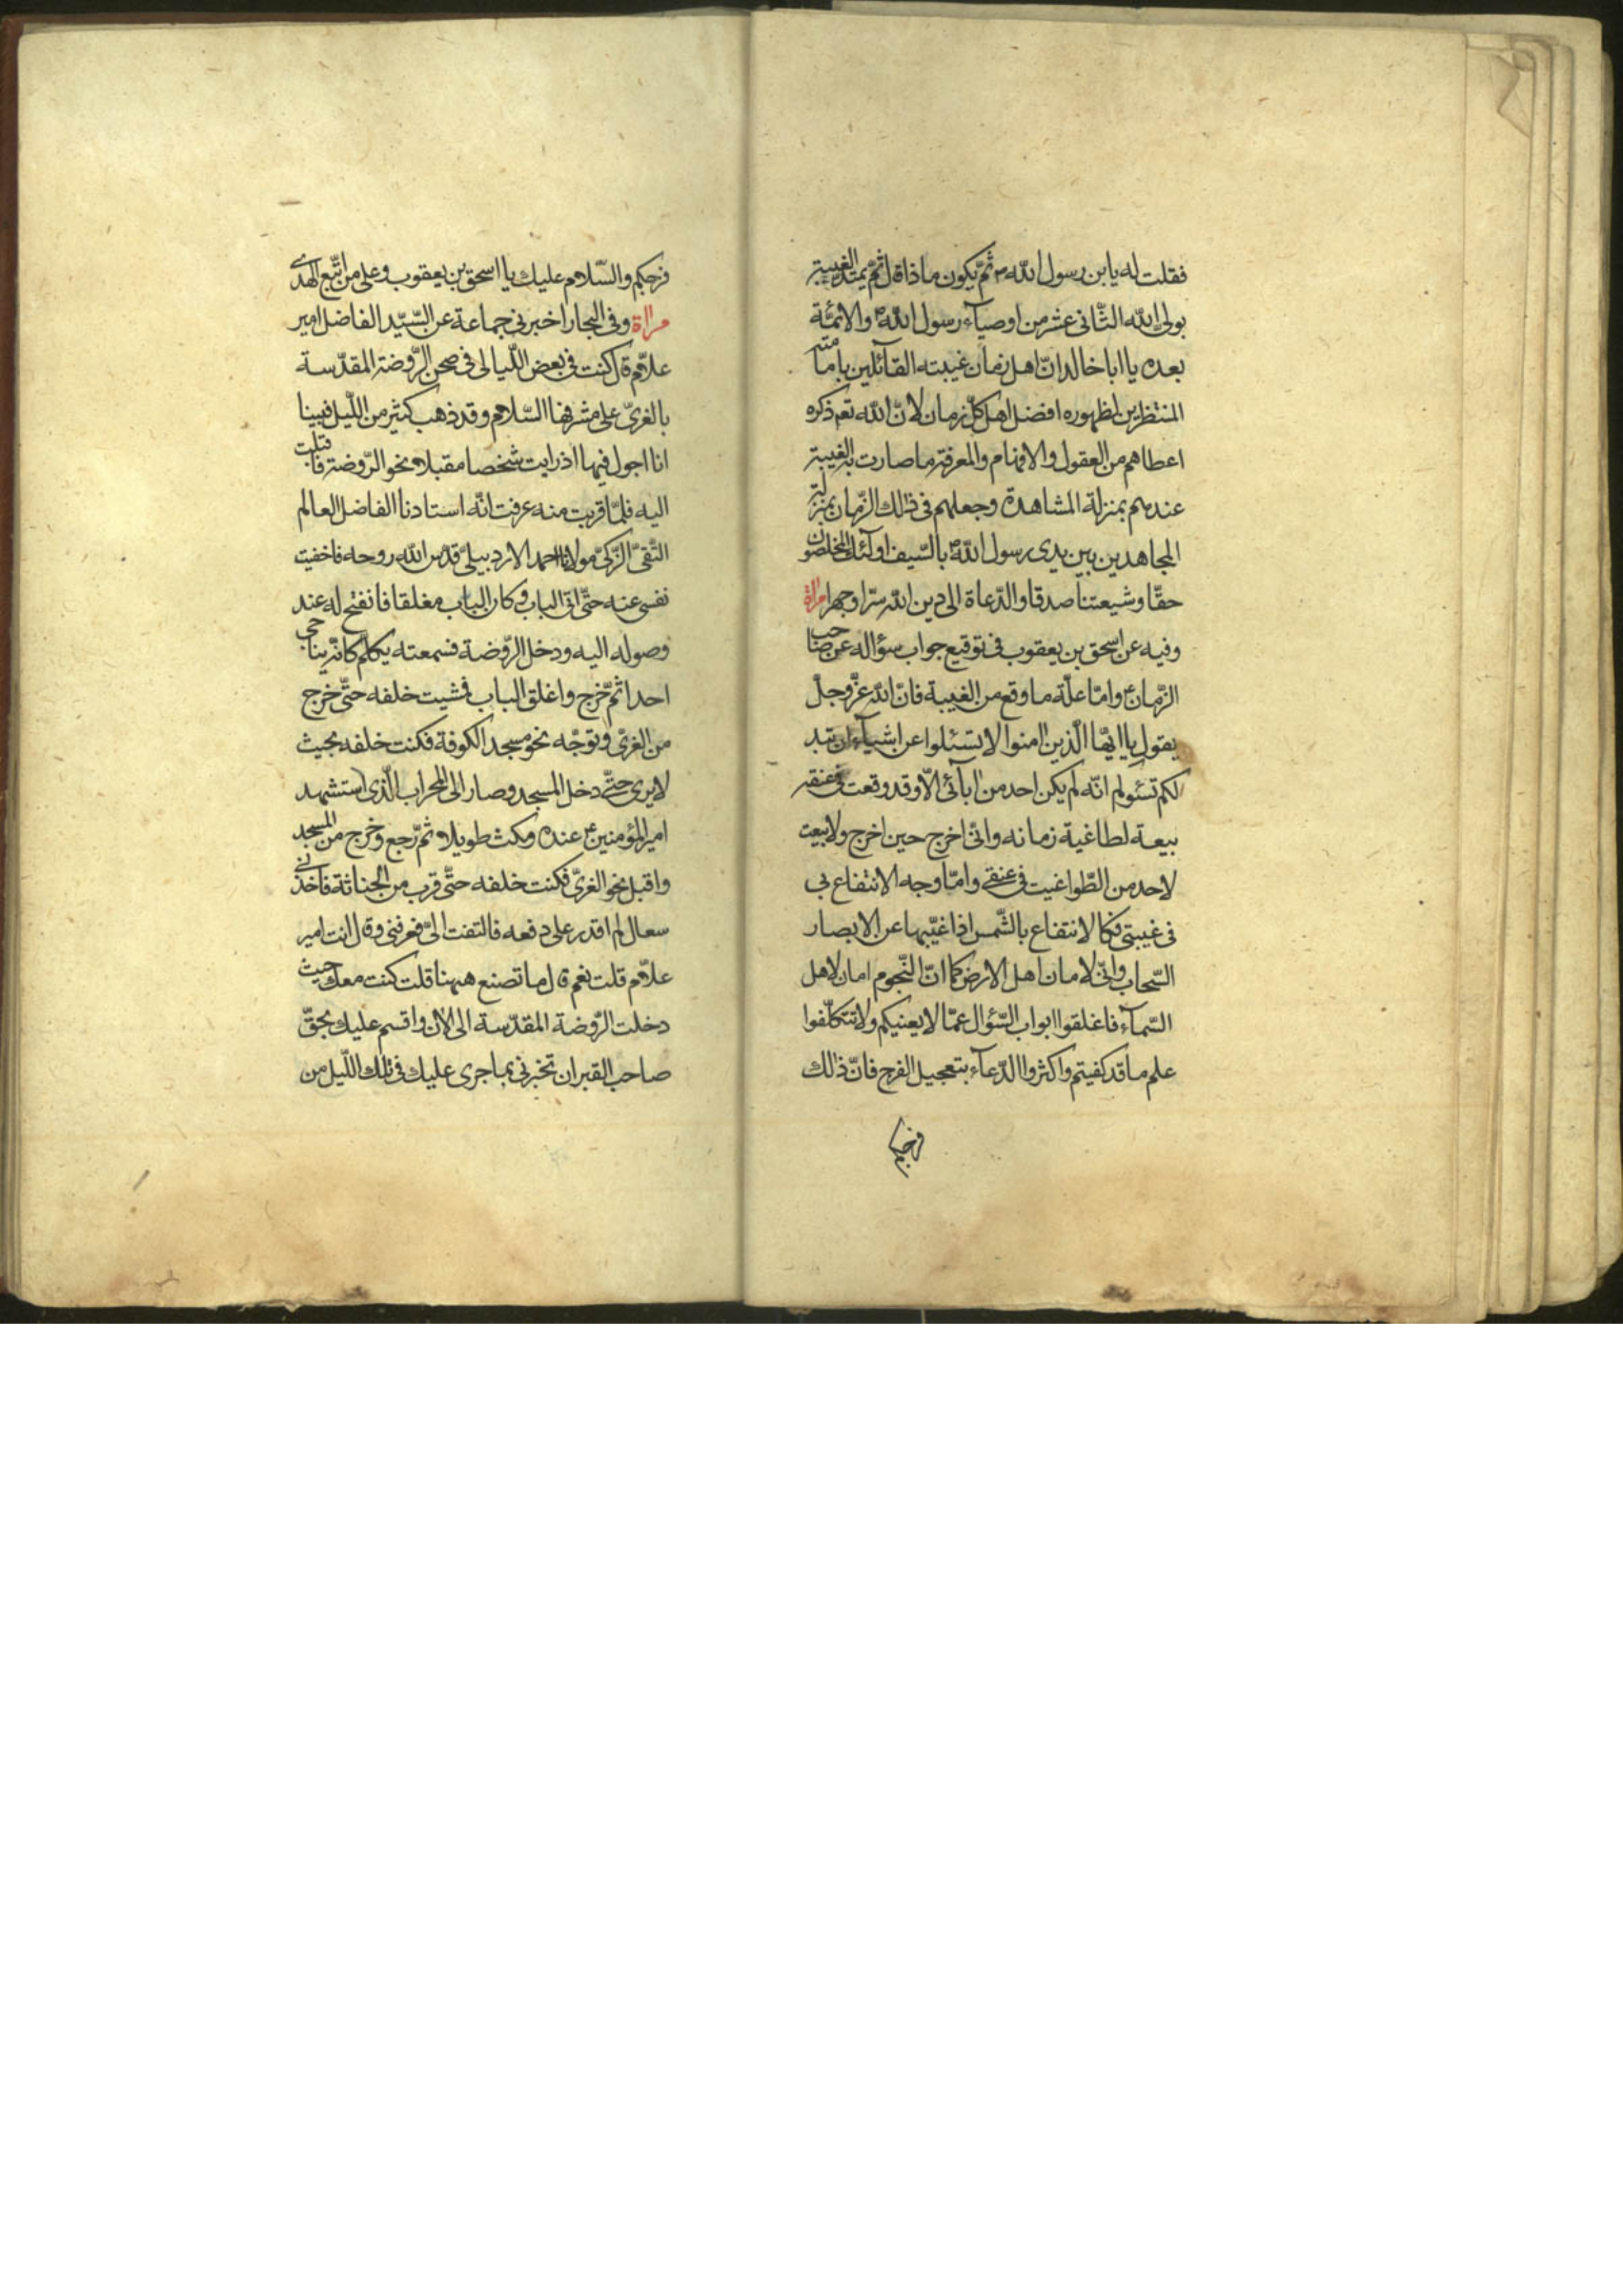 فقلت له يابن رسول الله ص ثمّ يكون ماذا قال ثمّ يمتدّ الغيبة
بولىّ الله الثّانى عشر من اوصيآء رسول اللهؐ والائمّة
بعده يا ابا خالد انّ اهل زمان غيبته القآئلين بامامته
المنتظرين لظهوره افضل اهل كلّ زمان لانّ الله تعم ذكره
اعطاهم من العقول والافهام والمعرفة ما صارت به الغيبة
عندهم بمنزلة المشاهدة وجعلهم فى ذلك الزّمان بمنزلة
المجاهدين بين يدى رسول اللهؐ بالسّيف اولئك المخلصون
حقّا وشيعتنا صدقا والدّعاة الى دين الله سرّا وجهرا مراة
وفيه عن اسحق بن يعقوب فى توقيع جواب سؤاله عن صاحب
الزّمانؑ وامّا علّة ما وقع من الغيبة فانّ الله عزّ وجلّ
يقول يا ايّها الّذين امنوا لا تسئلوا عن اشيآء ان تبد
لكم تسئولم انّه لم يكن احد من ابآئى الّا وقد وقعت فى عنقه
بيعة لطاغية زمانه وانّى اخرج حين اخرج ولا بيعت
لاحد من الطّواغيت فى عنقى وامّا وجه الانتفاع بى
فى غيبتى فكالانتفاع بالشّمس اذا غيّبها عن الابصار
السّحاب وانّى لامان اهل الارض كما انّ النّجوم امان لاهل
السّمآء فاغلقوا ابواب السّؤال عمّا لا يعنيكم ولا تتكلّفوا
علم ما قد كفيتم واكثروا الدّعآء بتعجيل الفرج فانّ ذلك
فرجكم
فرجكم والسّلام عليك يا اسحق بن يعقوب وعلى من اتّبع الهدى
مراة وفى البحار اخبرنى جماعة عن السّيّد الفاضل امير
علّام قال كنت فى بعض اللّيالى فى صحن الرّوضة المقدّسة
بالغرىّ على مشرفها السّلام وقد ذهب كثير من اللّيل فبينا
انا اجول فيها اذ رايت شخصا مقبلا نحو الرّوضة فاقبلت
اليه فلمّا قربت منه عرفت انّه استادنا الفاضل العالم
التّقىّ الزّكىّ مولانا احمد الاردبيلىّ قدّس الله روحه فاخفيت
نفسى عنه حتّى اتى الباب وكان الباب مغلقا فانفتح له عند
وصوله اليه ودخل الرّوضة فسمعته يكلّم كانّه يناجى
احدا ثمّ خرج واغلق الباب فمشيت خلفه حتّى خرج
من الغرىّ وتوجّه نحو مسجد الكوفة فكنت خلفه بحيث
لا يرى حتّى دخل المسجد وصار الى المحراب الّذى استشهد
امير المؤمنينؑ عنده ومكث طويلا ثمّ رجع وخرج من المسجد
واقبل نحو الغرىّ فكنت خلفه حتّى قرب من الحنانة فاخذنى
سعال لم اقدر على دفعه فالتفت الىّ فعرفنى وقال انت امير
علّام قلت نعم قال ما تصنع ههنا قلت كنت معك حيث
دخلت الرّوضة المقدّسة الى الان واقسم عليك بحقّ
صاحب القبر ان تخبرنى بما جرى عليك فى تلك اللّيل من